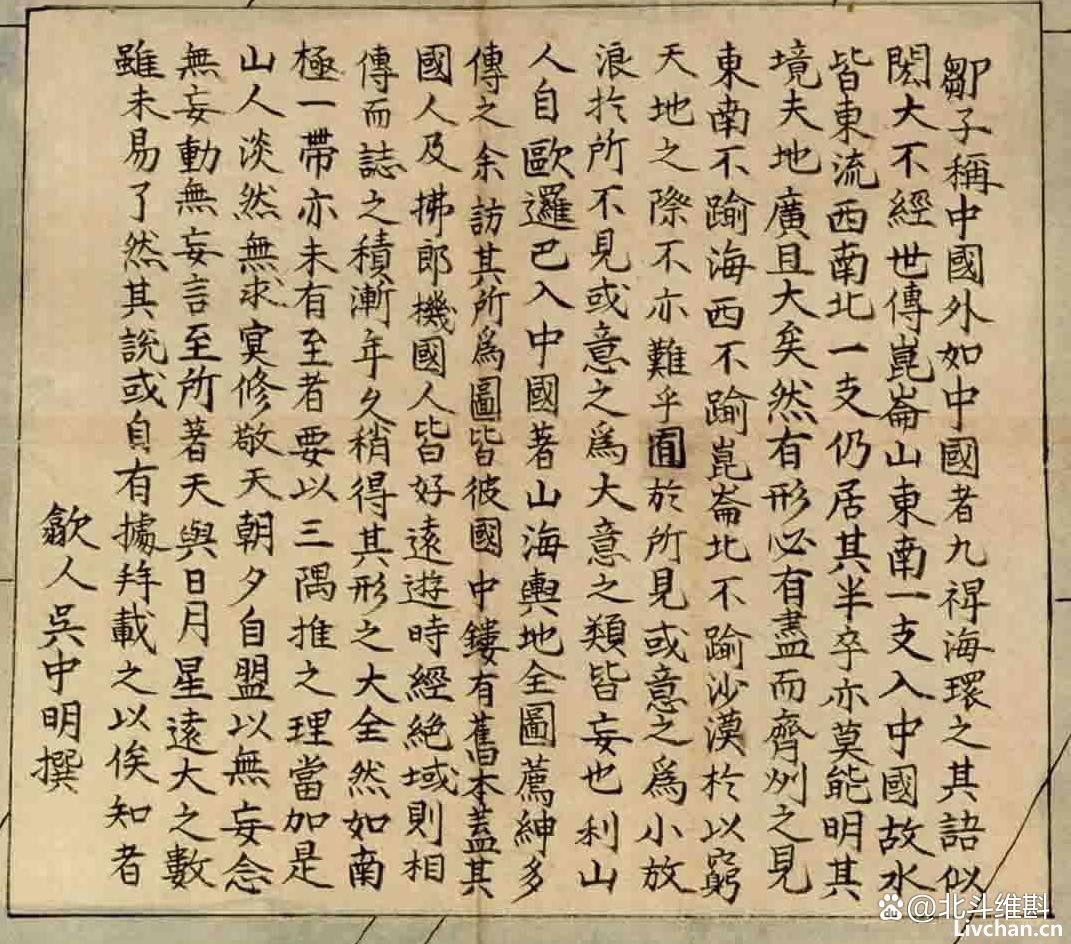 鄒子稱中國外如中國者九裨海環之其語似
閎大不經世傳崑崙山東南一支入中國故水
皆東流西南北一支仍居其半卒亦莫能明其
境夫地廣且大矣然有形必有盡而齊州之見
東南不踰海西不踰崑崙北不踰沙漠於以窮
天地之際不亦難乎囿於所見或意之為小放
浪於所不見或意之為大意之類皆妄也利山
人自歐邏巴入中國著山海輿地全圖薦紳多
傳之余訪其所為圖皆彼國中鏤有舊本蓋其
國人及拂郎機國人皆好遠遊時經絕域則相
傳而誌之積漸年久稍得其形之大全然如南
極一帶亦未有至者要以三隅推之理當如是
山人淡然無求冥修敬天朝夕自盟以無妄念
無妄動無妄言至所著天與日月星遠大之數
雖未易了然其說或自有據并載之以俟知者
歙人吳中明撰
@北斗維斟
Livchan.cn